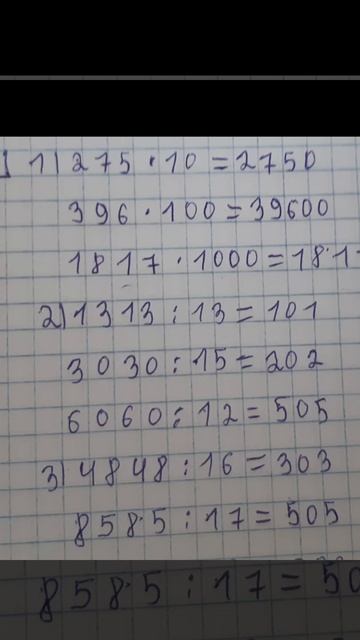 1) 275 · 10 = 2750
396 · 100 = 39600
1817 · 1000 = 181
2) 1313 : 13 = 101
3030 : 15 = 202
6060 : 12 = 505
3) 4848 : 16 = 303
8585 : 17 = 505
8585 : 17 = 50